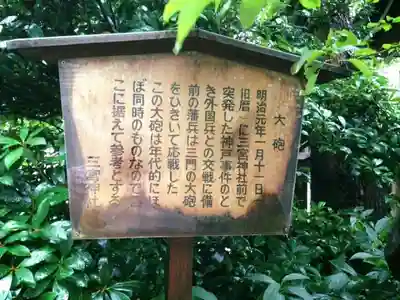 大砲
明治元年一月十一日
旧暦 に三宮神社前で
突発した神戸事件のと
き外国兵との交戦に備
前の藩兵は三門の大砲
をひきいて応戦した
この大砲は年代的にほ
ぼ同時のものなので
こに据えて参考とする
三宮神社